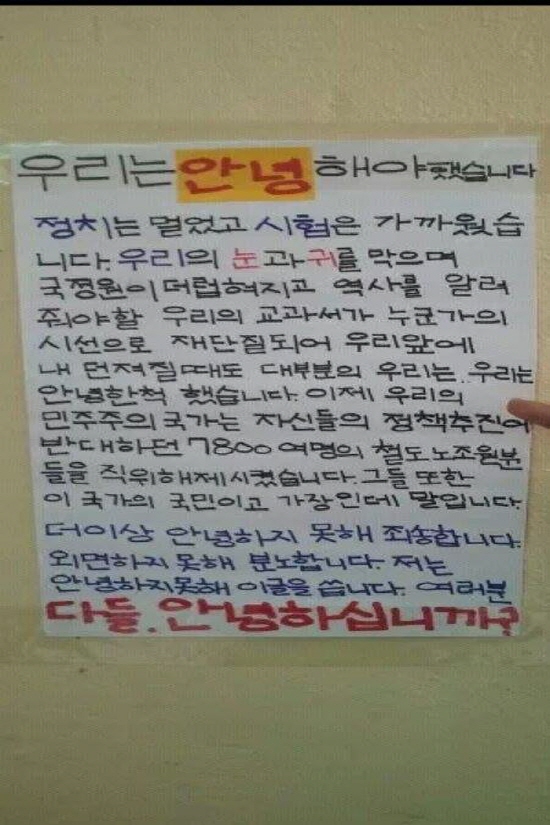 우리는 안녕해야했습니다
정치는 멀었고 시험은 가까웠습
니다. 우리의 눈과 귀를 막으며
국정원이 더럽혀지고 역사를 알려
줘야할 우리의 교과서가 누군가의
시선으로 재단질되어 우리앞에
내 던져질때도 대부분의 우리는. 우리는
안녕한척 했습니다. 이제 우리의
민주주의 국가는 자신들의 정책추진에
반대하던 7800 여명의 철도노조원분
들을 직위해제시켰습니다. 그들 또한
이 국가의 국민이고 가장인데 말입니다.
더이상 안녕하지 못해 죄송합니다.
외면하지 못해 분노합니다. 저는
안녕하지못해 이글을 씁니다. 여러분
다들. 안녕하십니까?